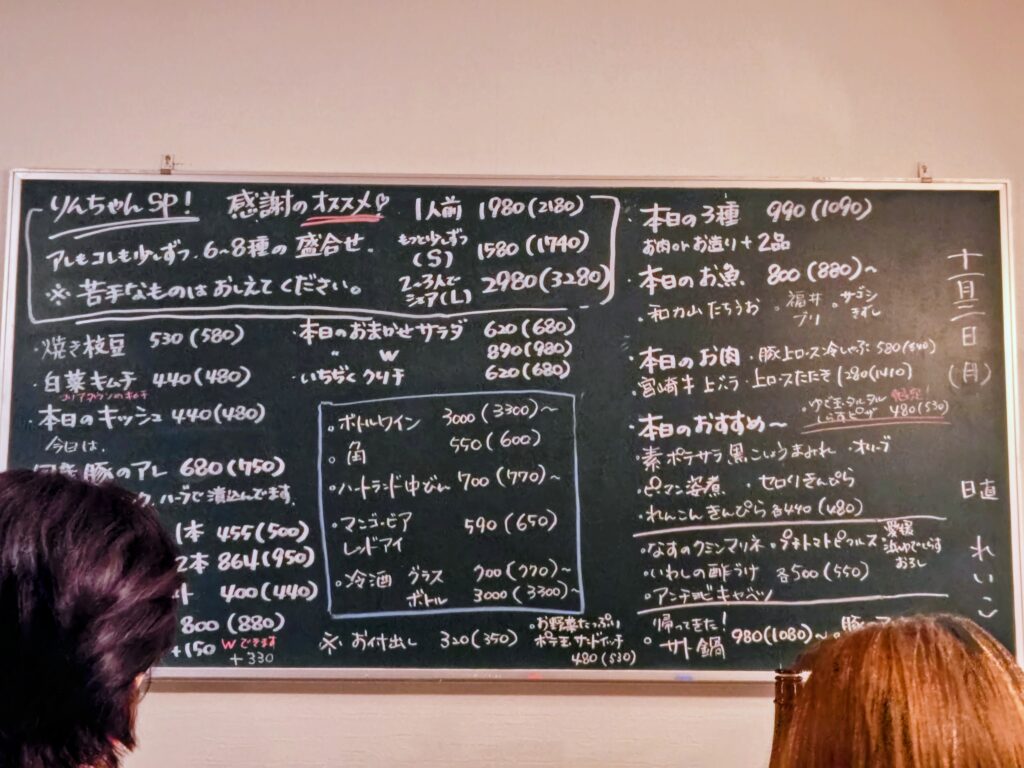 りんちゃんSP! 感謝のオススメ♡ 1人前 1980(2180)
アレもコレも少しずつ、6〜8種の盛合せ、 もっと少しずつ(S) 1580(1740)
※苦手なものはおしえてください。 2〜3人でシェア(L) 2980(3280)
・焼き枝豆 530(580)
・白菜キムチ 440(480)
・本日のキッシュ 440(480)
今日は、
豚のアレ 680(750)
ク、ハーブで漬込んでます
1本 455(500)
2本 864(950)
400(440)
800(880)
+150 Wできます
+330
・本日のおまかせサラダ 620(680)
〃 W 890(980)
・いちぢくクリチ 620(680)
。ボトルワイン 3000(3300)〜
。角 550(600)
・ハートランド中びん 700(770)〜
・マンゴービア 590(650)
レッドアイ
・冷酒 グラス 700(770)〜
ボトル 3000(3300)〜
※お付出し 320(350)
。お野菜たっぷり
ポテ玉サンドイッチ
480(530)
・本日の3種 990(1090)
お肉orお造り+2品
・本日のお魚 800(880)〜
・和カ山たちうお ・福井ブリ 。サゴシきずし
・本日のお肉 ・豚上ロース冷しゃぶ 580(640)
宮崎牛上バラ・上ロースたたき 1280(1410)
・本日のおすすめ〜 ・ゆで玉タルタル
しらすピザ 480(530)
・素ポテサラ 黒こしょうまみれ ・オリーブ
・ピーマン姿煮 ・セロリきんぴら
・れんこんきんぴら 各440(480)
・なすのクミンマリネ 。プチトマトピクルス
・いわしの酢漬け 各500(550)
・アンチョビキャベツ
愛媛
浜ゆでしらす
おろし
帰ってきた!
サト鍋 980(1080)〜 豚
十一月二日(月)
日直 れいこ